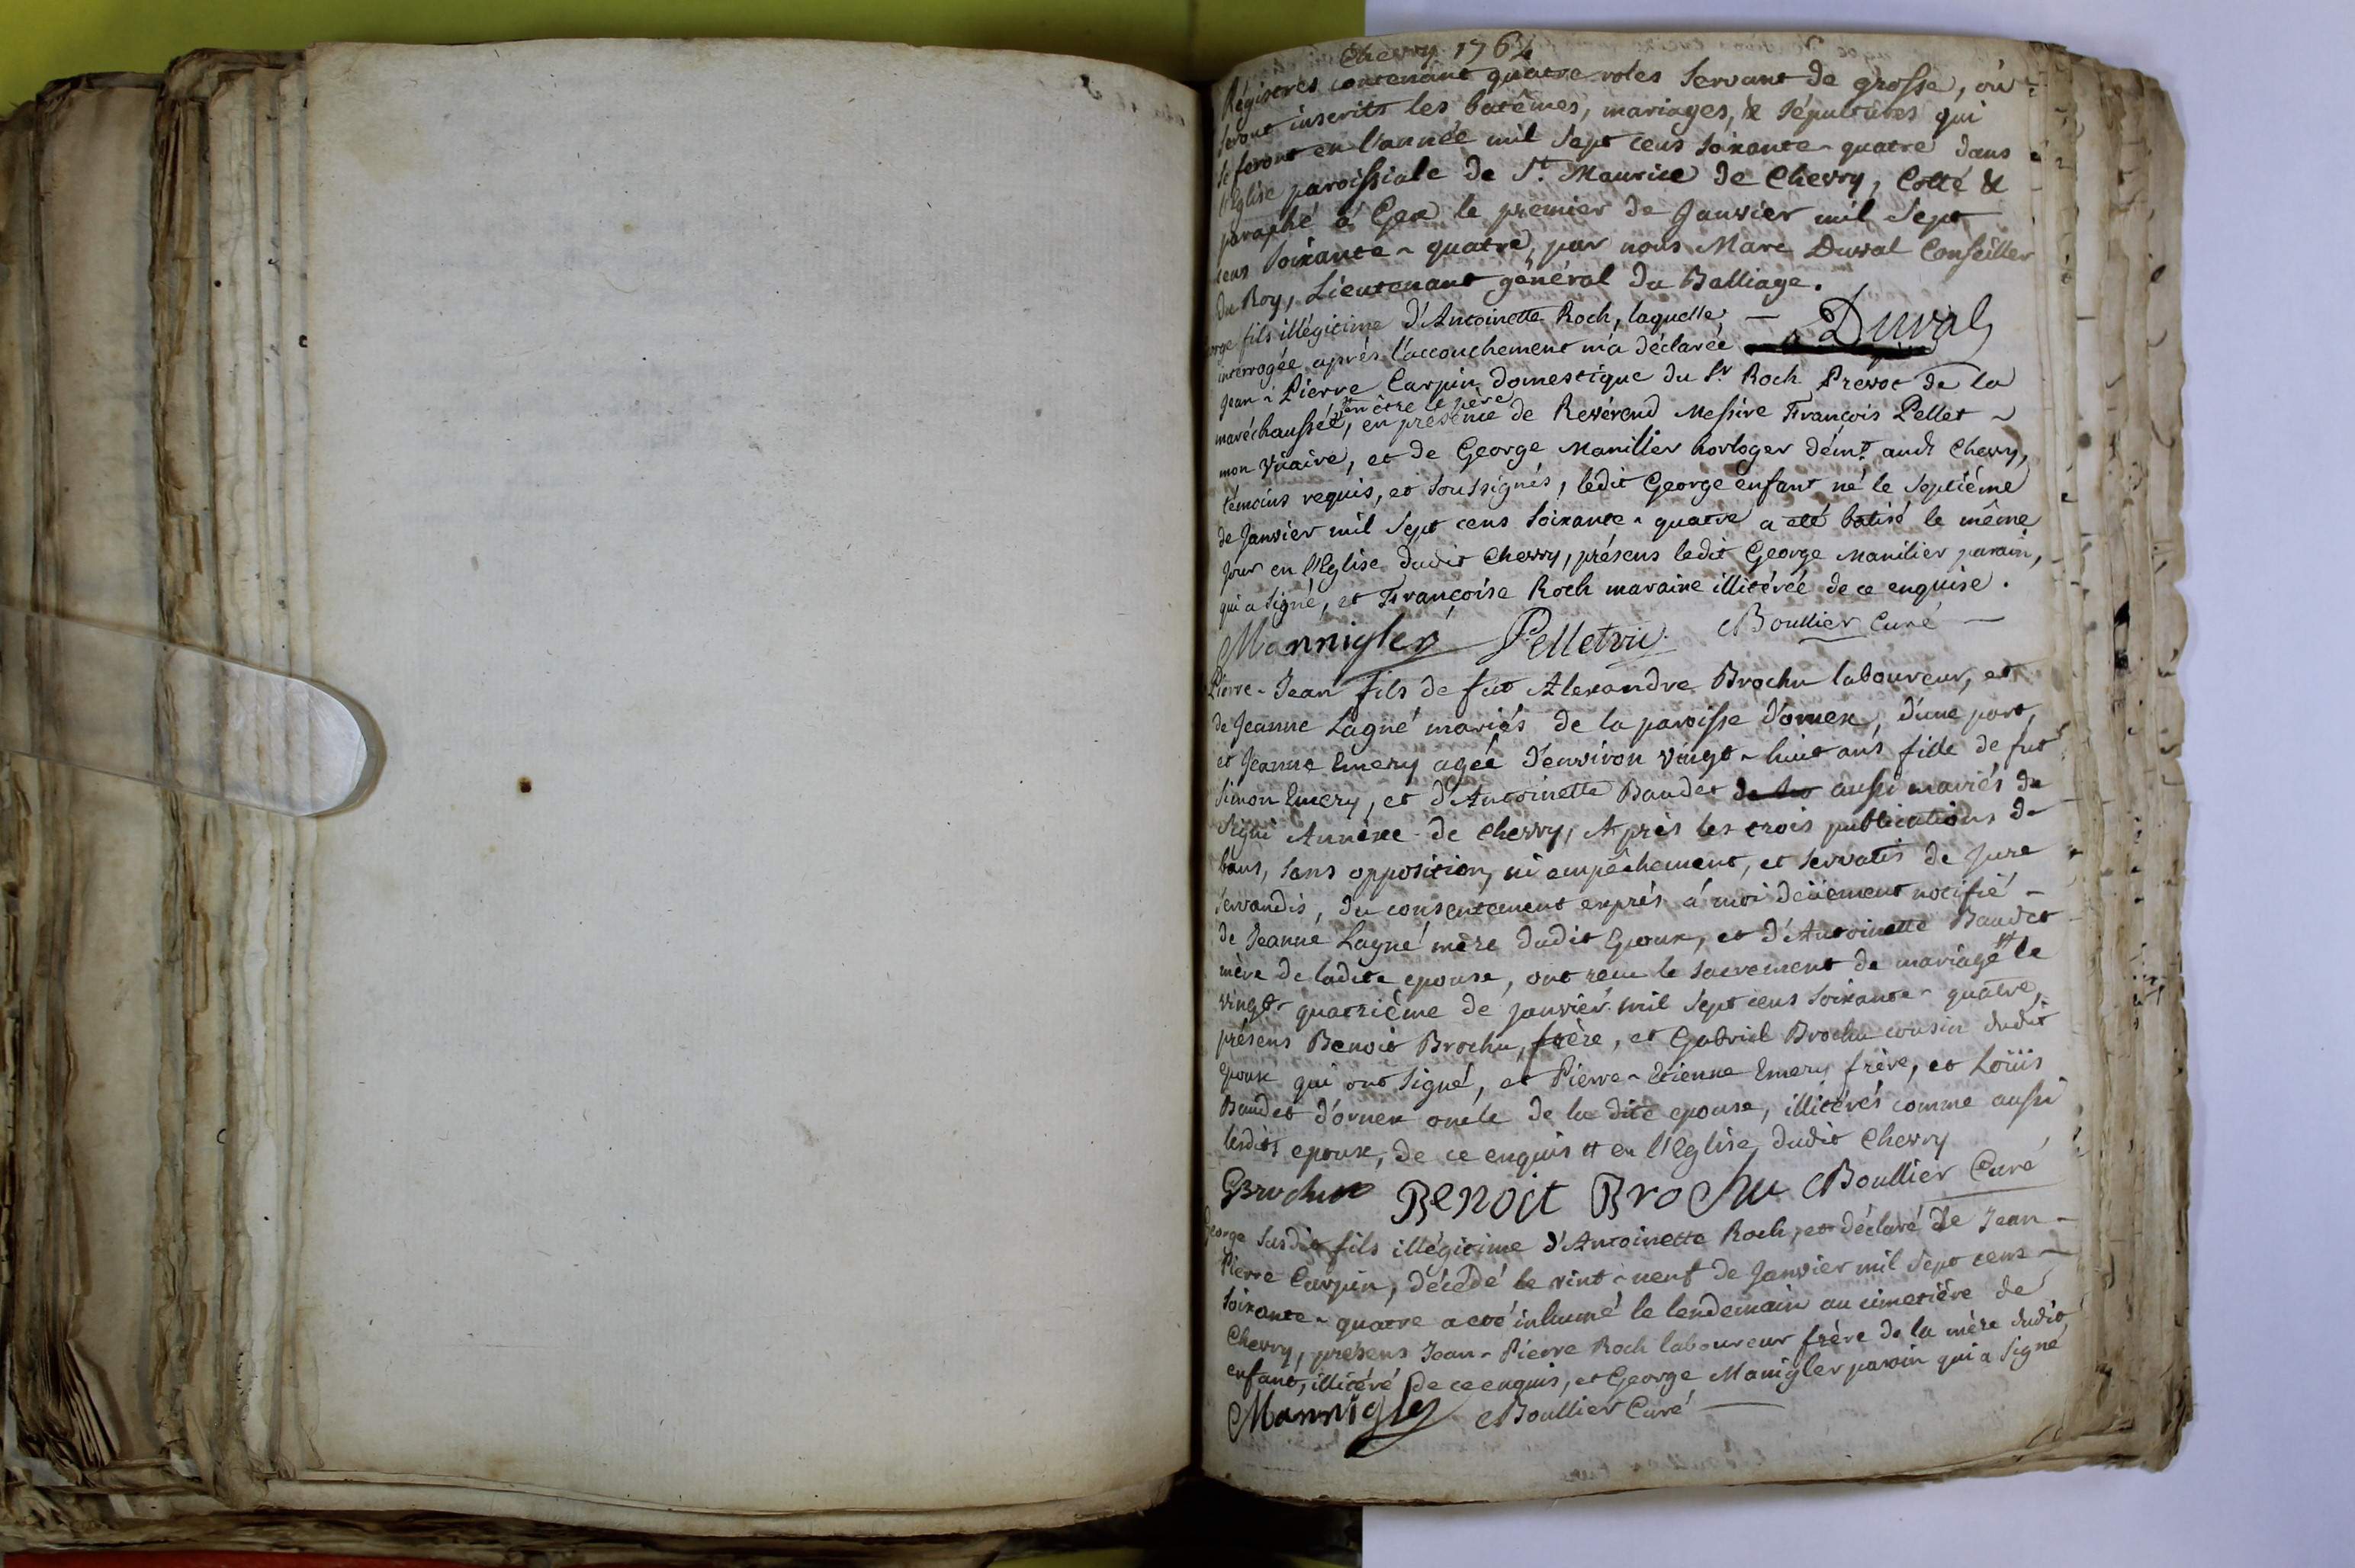 Chevry 1764
Régistres contenant quatre roles servant de grosse, où
seront inscrits les batêmes, mariages, & sépultures qui
se feront en l'année mil sept cens soixante-quatre dans
l'Eglise paroissiale de St. Maurice de Chevry, Cotté &
paraphé à Gex le premier de Janvier mil sept
cens soixante-quatre, par nous Marc Duval Conseiller
du Roy, Lieutenant général du Balliage.
Duval
George fils illégitime d'Antoinette Roch, laquelle
interrogée après l'accouchement m'a déclarée
Jean-Pierre Carpin domestique du Sr. Roch Prevot de la
en être le père
maréchaussée, en présence de Revérend Messire François Pellet
mon Vicaire, et de George Manillier horloger demt. audt Chevry,
témoins requis, et soussignés, ledit George enfant né le septiéme
de Janvier mil sept cens soixante-quatre a eté batisé le même
jour en l'Eglise dudit Chevry, présens ledit George Manilier parain,
qui a signé, et Françoise Roch maraine illitérée de ce enquise.
Mannigler Pellet vic. Boullier Curé
Pierre-Jean fils de fut Alexandre Brochu laboureur, et
de Jeanne Lagné mariés de la paroisse d'ornex, d'une part,
et Jeanne Emery agée d'environ vingt-huit ans fille de fut
Simon Emery, et d'Antoinette Baudet aussi mariés de
Segni Annexe de Chevry, Après les trois publications de
bans, sans opposition, ni empêchement, et servatis de jure
servandis, du consentement exprés à moi deüement notifié
de Jeanne Lagné mère dudit Epoux, et d'Antoinette Baudet
mère de ladite epouse, ont reçu le sacrement de mariage # le
vingt-quatrième de janvier mil sept cens soixante-quatre,
présens Benoit Brochu, frère, et Gabriel Brochu cousin dudit
epoux qui ont signé, et Pierre-Etienne Emery frère, et Loüis
Baudet d'ornex oncle de la dite epouse, illitérés comme aussi
lesdits epoux, de ce enquis # en l'Eglise dudit Chevry
GBrochu Benoit Brochu Boullier Curé
George susdit fils illégitime d'Antoinette Roch, et déclaré de Jean-
Pierre Carpin, décédé le vint-neuf de Janvier mil sept cens
soixante-quatre a eté inhumé le lendemain au cimetière de
Chevry, présens Jean-Pierre Roch laboureur frère de la mère dudit
enfant, illitéré de ce enquis, et George Manigler parain qui a signé
Mannigler Boullier Curé